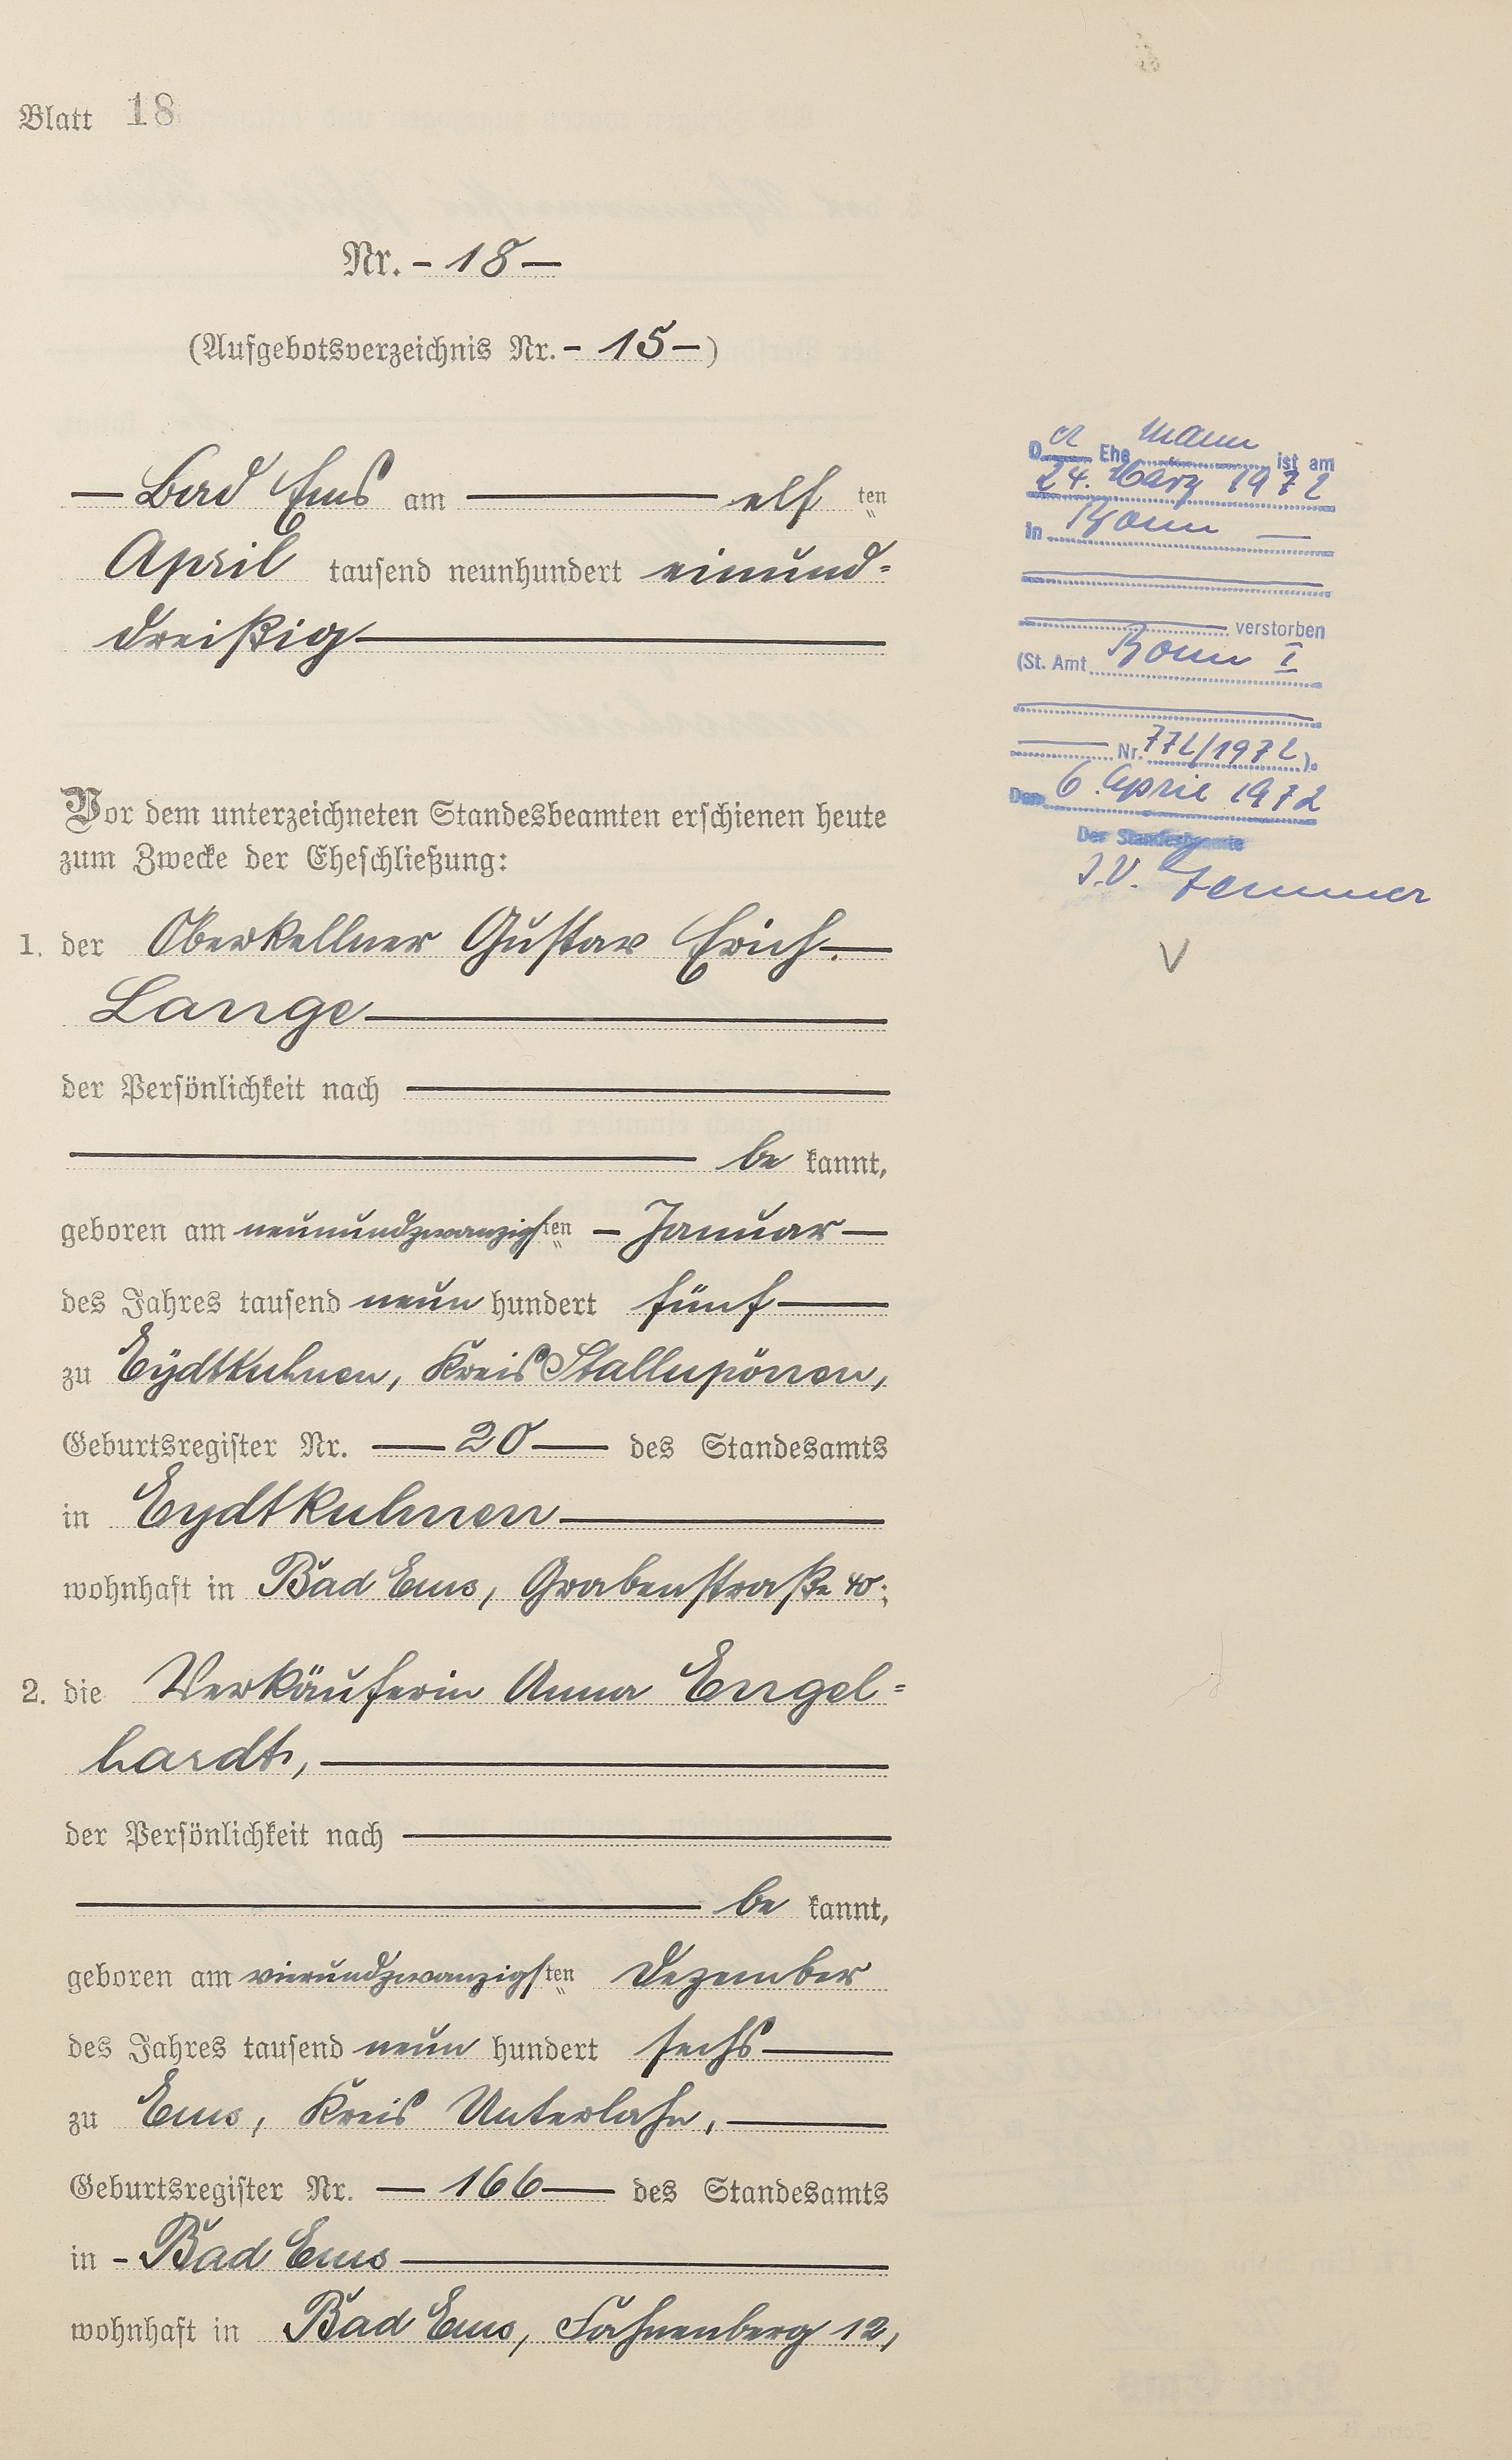 Blatt 18
Nr. - 18 -
(Aufgebotsverzeichnis Nr. - 15 -)
Bad Ems am elf ten
April tausend neunhundert einund=
dreißig
Vor dem unterzeichneten Standesbeamten erschienen heute
zum Zwecke der Eheschließung:
1. der Oberkellner Gustav Erich
Lange
der Persönlichkeit nach
be kannt,
geboren am neunundzwanzigsten - Januar -
des Jahres tausend neun hundert fünf
zu Eydtkuhnen, Kreis Stallupönen,
Geburtsregister Nr. 20 des Standesamts
in Eydtkuhnen
wohnhaft in Bad Ems, Grabenstraße 40;
2. die Verkäuferin Anna Engel=
hardt,
der Persönlichkeit nach
be kannt,
geboren am vierundzwanzigsten Dezember
des Jahres tausend neun hundert sechs
zu Ems, Kreis Unterlahn,
Geburtsregister Nr. 166 des Standesamts
in - Bad Ems
wohnhaft in Bad Ems, Fahnenberg 12,
Der Ehemann ist am
24. März 1972
in Bonn
verstorben
(St. Amt Bonn I
Nr. 772/1972).
Den 6. April 1972
Der Standesbeamte
I.V.